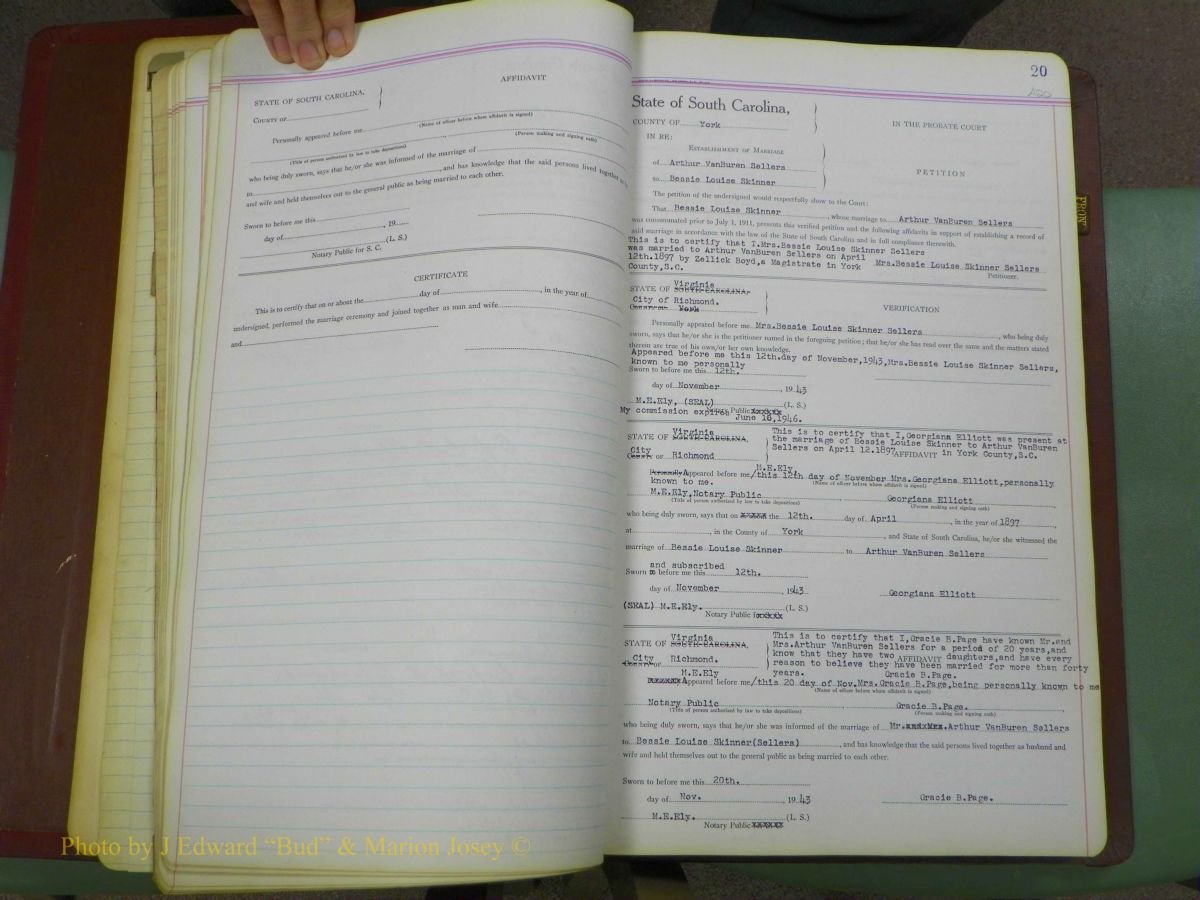 AFFIDAVIT
STATE OF SOUTH CAROLINA,
COUNTY OF
Personally appeared before me
(Name of officer before whom affidavit is signed)
(Title of person authorized by law to take depositions)
(Person making and signing oath)
who being duly sworn, says that he/she was informed of the marriage of
to , and has knowledge that the said persons lived together as
and wife and held themselves out to the general public as being married to each other.
Sworn to before me this
day of , 19
(L. S.)
Notary Public for S. C.
CERTIFICATE
This is to certify that on or about the day of , in the year of
undersigned, performed the marriage ceremony and joined together as man and wife
and
20
State of South Carolina,
COUNTY OF York
IN THE PROBATE COURT
IN RE:
ESTABLISHMENT OF MARRIAGE
of Arthur VanBuren Sellers
to Bessie Louise Skinner
PETITION
The petition of the undersigned would respectfully show to the Court:
That Bessie Louise Skinner , whose marriage to Arthur VanBuren Sellers
was consummated prior to July 1, 1911, presents this verified petition and the following affidavits in support of establishing a record of
said marriage in accordance with the law of the State of South Carolina and in full compliance therewith.
This is to certify that I,Mrs.Bessie Louise Skinner Sellers
was married to Arthur VanBuren Sellers on April
12th.1897 by Zellick Boyd,a Magistrate in York
County,S.C.
Mrs.Bessie Louise Skinner Sellers
Petitioner.
Virginia
STATE OF SOUTH CAROLINA,
City of Richmond.
County of York
VERIFICATION
Personally appeared before me Mrs.Bessie Louise Skinner Sellers , who being duly
sworn, says that he/she is the petitioner named in the foregoing petition; that he/she has read over the same and the matters stated
therein are true of his own/or her own knowledge.
Appeared before me this 12th.day of November,1943,Mrs.Bessie Louise Skinner Sellers,
known to me personally
Sworn to before me this 12th.
day of November , 1943
M.E.Ely, (SEAL) (L. S.)
Notary Public xxxxxx
My commission expires June 16,1946.
Virginia
STATE OF SOUTH CAROLINA,
City
County OF Richmond
This is to certify that I,Georgiana Elliott was present at
the marriage of Bessie Louise Skinner to Arthur VanBuren
Sellers on April 12.1897 AFFIDAVIT in York County,S.C.
M.E.Ely,
Personally Appeared before me/this 12th day of November Mrs.Georgiana Elliott,personally
known to me.
(Name of officer before whom affidavit is signed)
M.E.Ely,Notary Public , Georgiana Elliott
(Title of person authorized by law to take depositions)
(Person making and signing oath)
who being duly sworn, says that on xxxxx the 12th. day of April , in the year of 1897 ,
at , in the County of York , and State of South Carolina, he/she witnessed the
marriage of Bessie Louise Skinner to Arthur VanBuren Sellers
and subscribed
Sworn to before me this 12th.
day of November , 1943
Georgiana Elliott
(SEAL) M.E.Ely. (L. S.)
Notary Public forxxxx
Virginia
STATE OF SOUTH CAROLINA,
City Richmond.
County OF
This is to certify that I,Gracie B.Page have known Mr.and
Mrs.Arthur VanBuren Sellers for a period of 20 years,and
know that they have two AFFIDAVIT daughters,and have every
reason to believe they have been married for more than forty
years. Gracie B.Page.
M.E.Ely
xxxxxxx Appeared before me/this 20 day of Nov.Mrs.Gracie B.Page,being personally known to me
(Name of officer before whom affidavit is signed)
Notary Public , Gracie B.Page.
(Title of person authorized by law to take depositions)
(Person making and signing oath)
who being duly sworn, says that he/she was informed of the marriage of Mr.andxMrs.Arthur VanBuren Sellers
to Bessie Louise Skinner(Sellers) , and has knowledge that the said persons lived together as husband and
wife and held themselves out to the general public as being married to each other.
Sworn to before me this 20th.
day of Nov. , 1943
Gracie B.Page.
M.E.Ely. (L. S.)
Notary Public xxxxxx
FRONT
Photo by J Edward "Bud" & Marion Josey ©